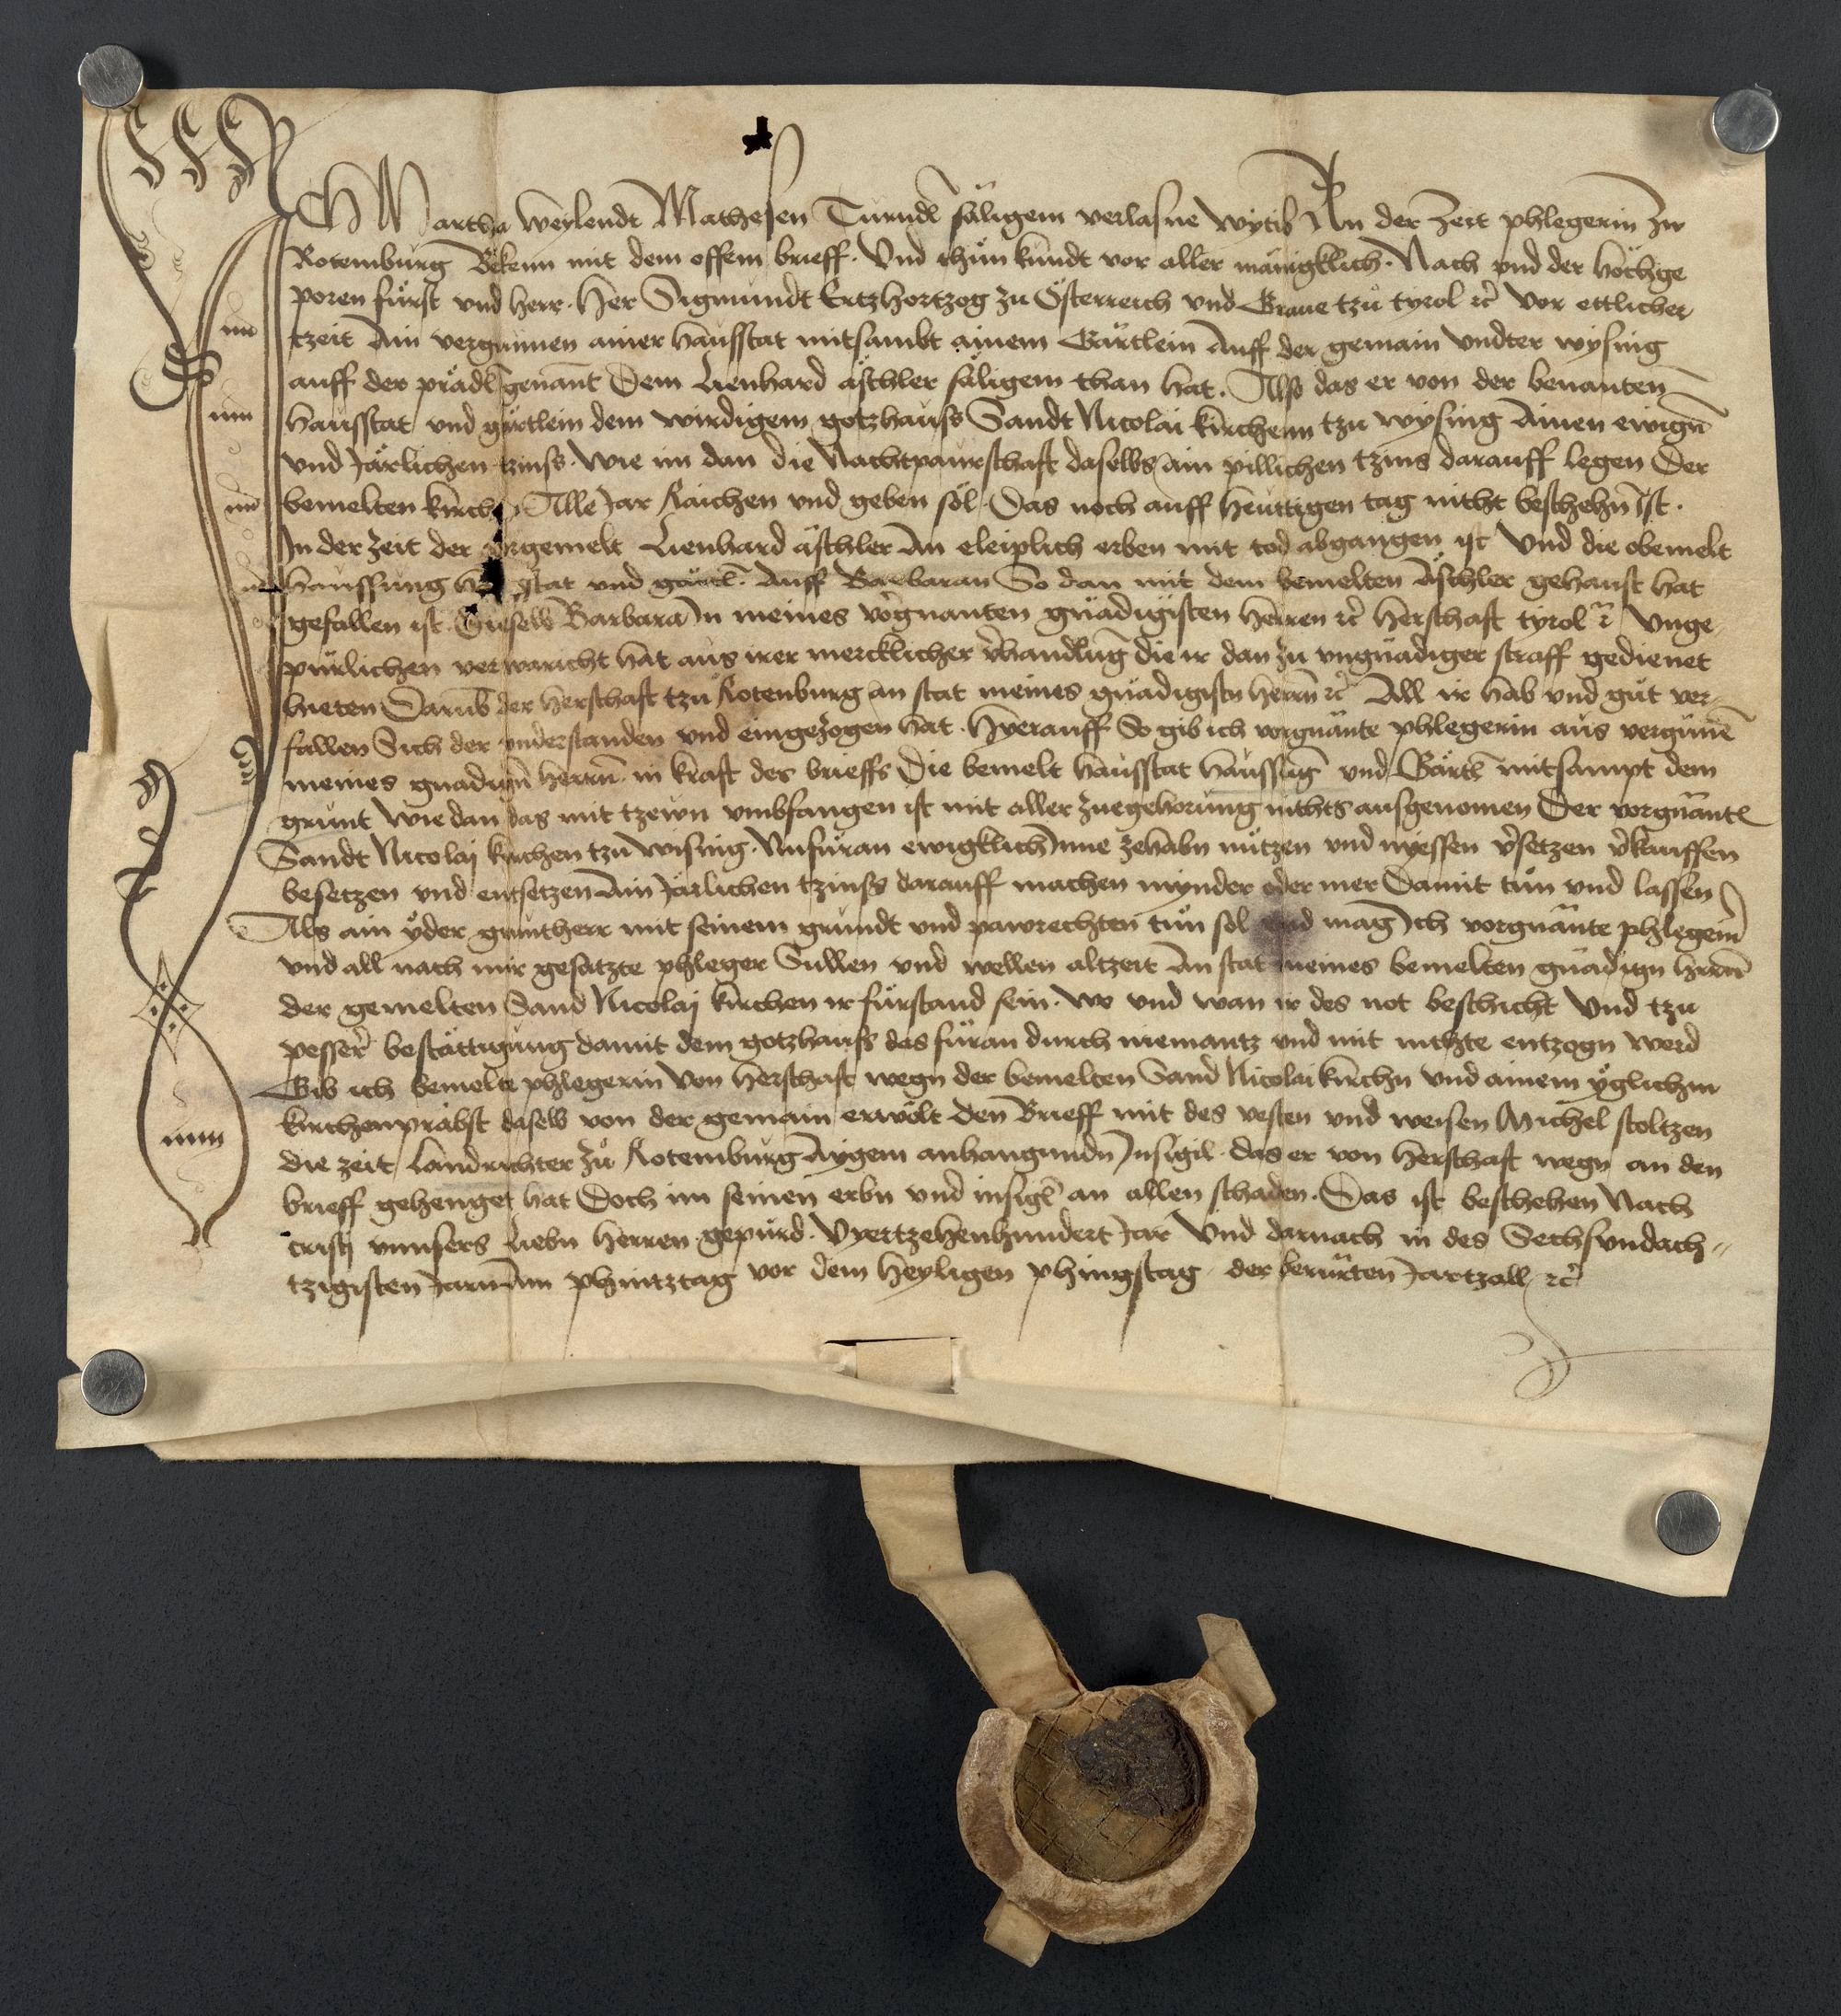 ICH Martha weylendt Mathesen Turndl säligem verlasne wytib An der Zeit phlegerin Zw
Rotemburg Bekenn mit dem offem brieff. Vnd thůn kundt vor aller mänigklich. Nach vnd der hochge
poren fürst vnd herr. Her Sigmundt Ertzhertzog zu Österreich vnd Graue tzu tyrol rc vor ettlicher
tzeit Ain vergunnen ainer hausstat mitsambt ainem Gärtlein Auff der gemain vndter wysing
auff der prädl genant Dem Lienhard äschler säligem than hat. Also das er von der benanten
hausstat vnd gärtlein dem wirdigem gotzhauss Sandt Nicolai kirchenn tzu wysing Ainen ewign
vnd Järlichen tzinss. wie im dan die Nachtpaurschaft daselbs ain pillichen tzins darauff legen Der
bemelten kirchn Alle Jar Raichen vnd geben söl. Das noch auff heuttigen tag nicht beschehn ist.
In der zeit der vorgemelt Lienhard äschler An eleiplich erben mit tod abgangen ist Vnd die obemelt
haussung stat vnd gärtl. Auff Barbaran So dan mit dem bemelten Äschler gehaust hat
gefallen ist. Dieselb Barbara In meines vorgnanten gnädigisten herren rc herschaft tyrol rc Vnge
pürlichen verwaricht hat aus irer mercklicher vhandlung die ir dan zu vngnädiger straff gedienet
hieten Darumb der herschaft tzu Rotenburg an stat meines gnädigistn herrn rc All ir hab vnd gůt ver-
fallen Sich der vnderstanden vnd eingezogen hat. Hyerauff So gib ich vorgnante phlegerin aus vergunen
meines gnadign herrn in kraft des brieffs Die bemelt hausstat haussung vnd Gärtl mitsampt dem
grunt wie dan das mit tzewn vmbfangen ist mit aller zuegehorung nichts ausgenomen Der vorgnantn
Sandt Nicolaj kirchen tzu wising. Nufüran ewigklich Inne zehabn nützen vnd nyessen vsetzen vkauffen
besetzen vnd entsetzen Ain Järlichen tzinss darauff machen mynder oder mer Damit tun vnd lassen
Als ain yder gruntherr mit seinem grundt vnd pawrechten tun sol vnd mag Ich vorgnante phlegerin
vnd all nach mir gesatzte phleger Sullen vnd wellen altzeit An stat meines bemelten gnadign hern
der gemelten Sand Nicolaj kirchen ir fürstand sein. wo vnd wan ir des not beschicht Vnd tzu
pesser bestättigung damit dem gotzhauss das füran durch niemantz vnd mit nichte entzogn werd
Gib ich bemelte phlegerin von herschaft wegn der bemelten Sand Nicolai kirchn vnd ainem yglichm
kirchenprabst daselb von der gemain erwölt den Brieff mit des vesten vnd weisen Michel stoltzen
die zeit Landrichter zu Rotemburg Aygem anhangundn Insigil das er von herschaft wegn an den
brieff gehenget hat Doch im seinen erbn vnd insigl an allen schaden. Das ist beschehen Nach
cristj vnnsers Liebn herren gepurd. Vyertzehenhundert Jar Vnd darnach in des Sechsvndach-
tzigisten Jarn Am phintztag vor dem heyligen phingstag der berürten Jartzall rc